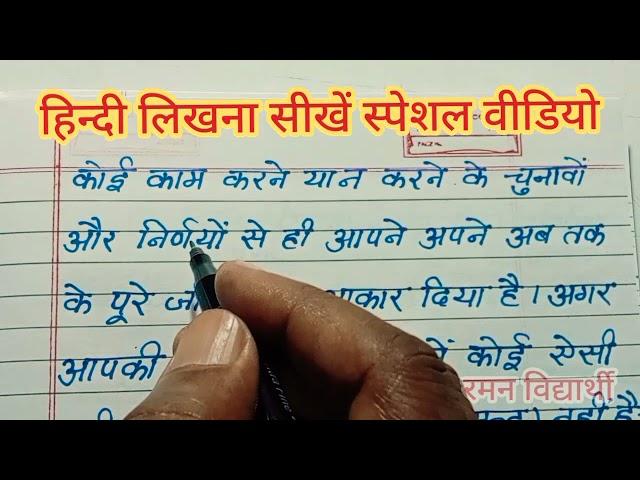 हिन्दी लिखना सीखें स्पेशल वीडियो
कोई काम करने या न करने के चुनावों
और निर्णयों से ही आपने अपने अब तक
के पूरे आकार दिया है। अगर
आपकी कोई ऐसी
रमन विद्यार्थी
नहीं है